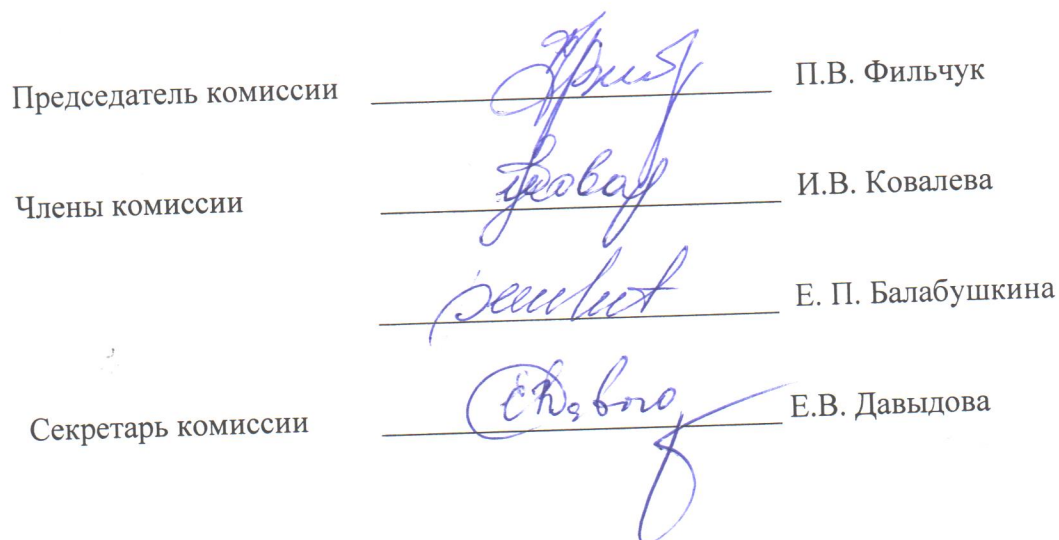 Председатель комиссии П.В. Фильчук
Члены комиссии И.В. Ковалева
Е. П. Балабушкина
Секретарь комиссии Е.В. Давыдова